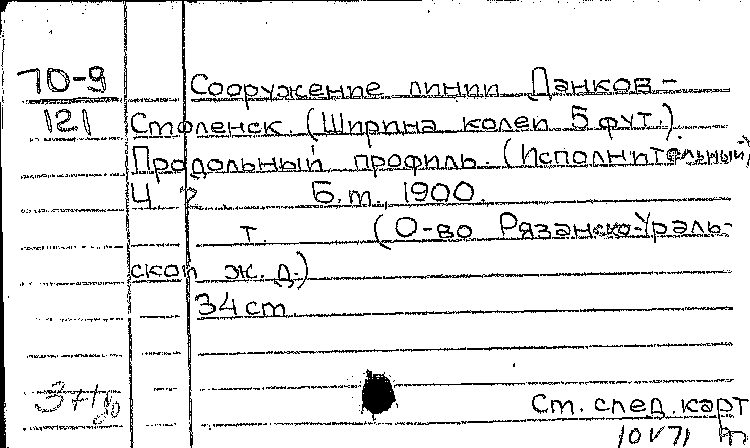 10-9 Сооружение линии Данков-
121 Смоленск. (Ширина колеи 5 фут.).
Продольный профиль. (Исполнительный)
Ч. 2 Б.т., 1900.
т. (О-во Рязанско-Ураль-
ской ж.д.)
34 ст.
Ст. спец. карт